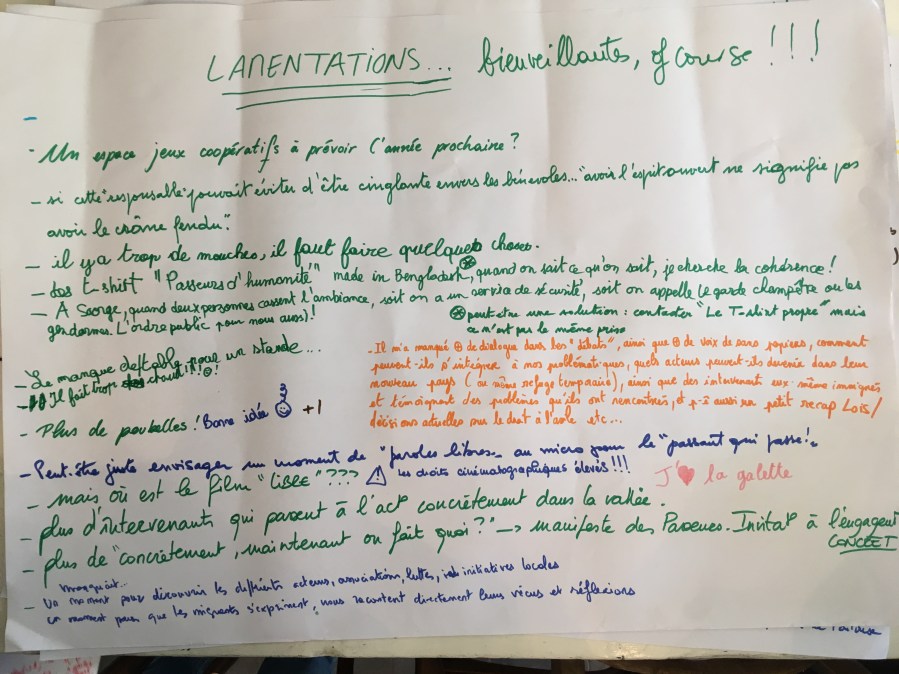 LAMENTATIONS... bienveillantes, of course !!!
- Un espace jeux coopératifs à prévoir l'année prochaine ?
- si cette "responsable" pouvait éviter d'être cinglante envers les bénévoles... "avoir l'esprit ouvert ne signifie pas
avoir le crâne fendu".
- il y a trop de mouches, il faut faire quelque chose.
- Les t-shirt "Passeurs d'humanité" made in Bengladesh, quand on sait ce qu'on sait, je cherche la cohérence !
- A Saorge, quand deux personnes cassent l'ambiance, soit on a un service de sécurité, soit on appelle le garde champêtre ou les
gendarmes. L'ordre public pour nous aussi) !
⊗ peut-etre une solution : contacter "Le T-shirt propre" mais
ce n'est pas le même prix
- Le manque de table pour un stande...
- Il fait trop chaud !!! !
- Plus de poubelles ! Bonne idée +1
- Il m'a manqué ⊕ de dialogue dans les "débats", ainsi que ⊕ de voix de sans papiers, comment
peuvent-ils s'intégrer à nos problématiques, quels acteurs peuvent-ils devenir dans leur
nouveau pays (ou même refuge temporaire), ainsi que des intervenants eux-même immigrés
et témoignant des problèmes qu'ils ont rencontrés, et p-ê aussi un petit recap Lois/
décisions actuelles sur le droit à l'asile etc...
- Peut-être juste envisager un moment de "paroles libres" au micro pour le "passant qui passe !"
- mais où est le film "LIBRE" ???
⚠ Les droits cinématographiques élevés !!!
J'❤ la galette
- plus d'intervenants qui passent à l'act° concrètement dans la vallée.
- plus de "concrètement, maintenant on fait quoi ?" → manifeste des Passeurs. Initat° à l'engagent
CONCRET
manquait...
- Un moment pour découvrir les différents acteurs, associations, luttes, initiatives locales
un moment pour que les migrants s'expriment, nous racontent directement leurs vécus et réflexions